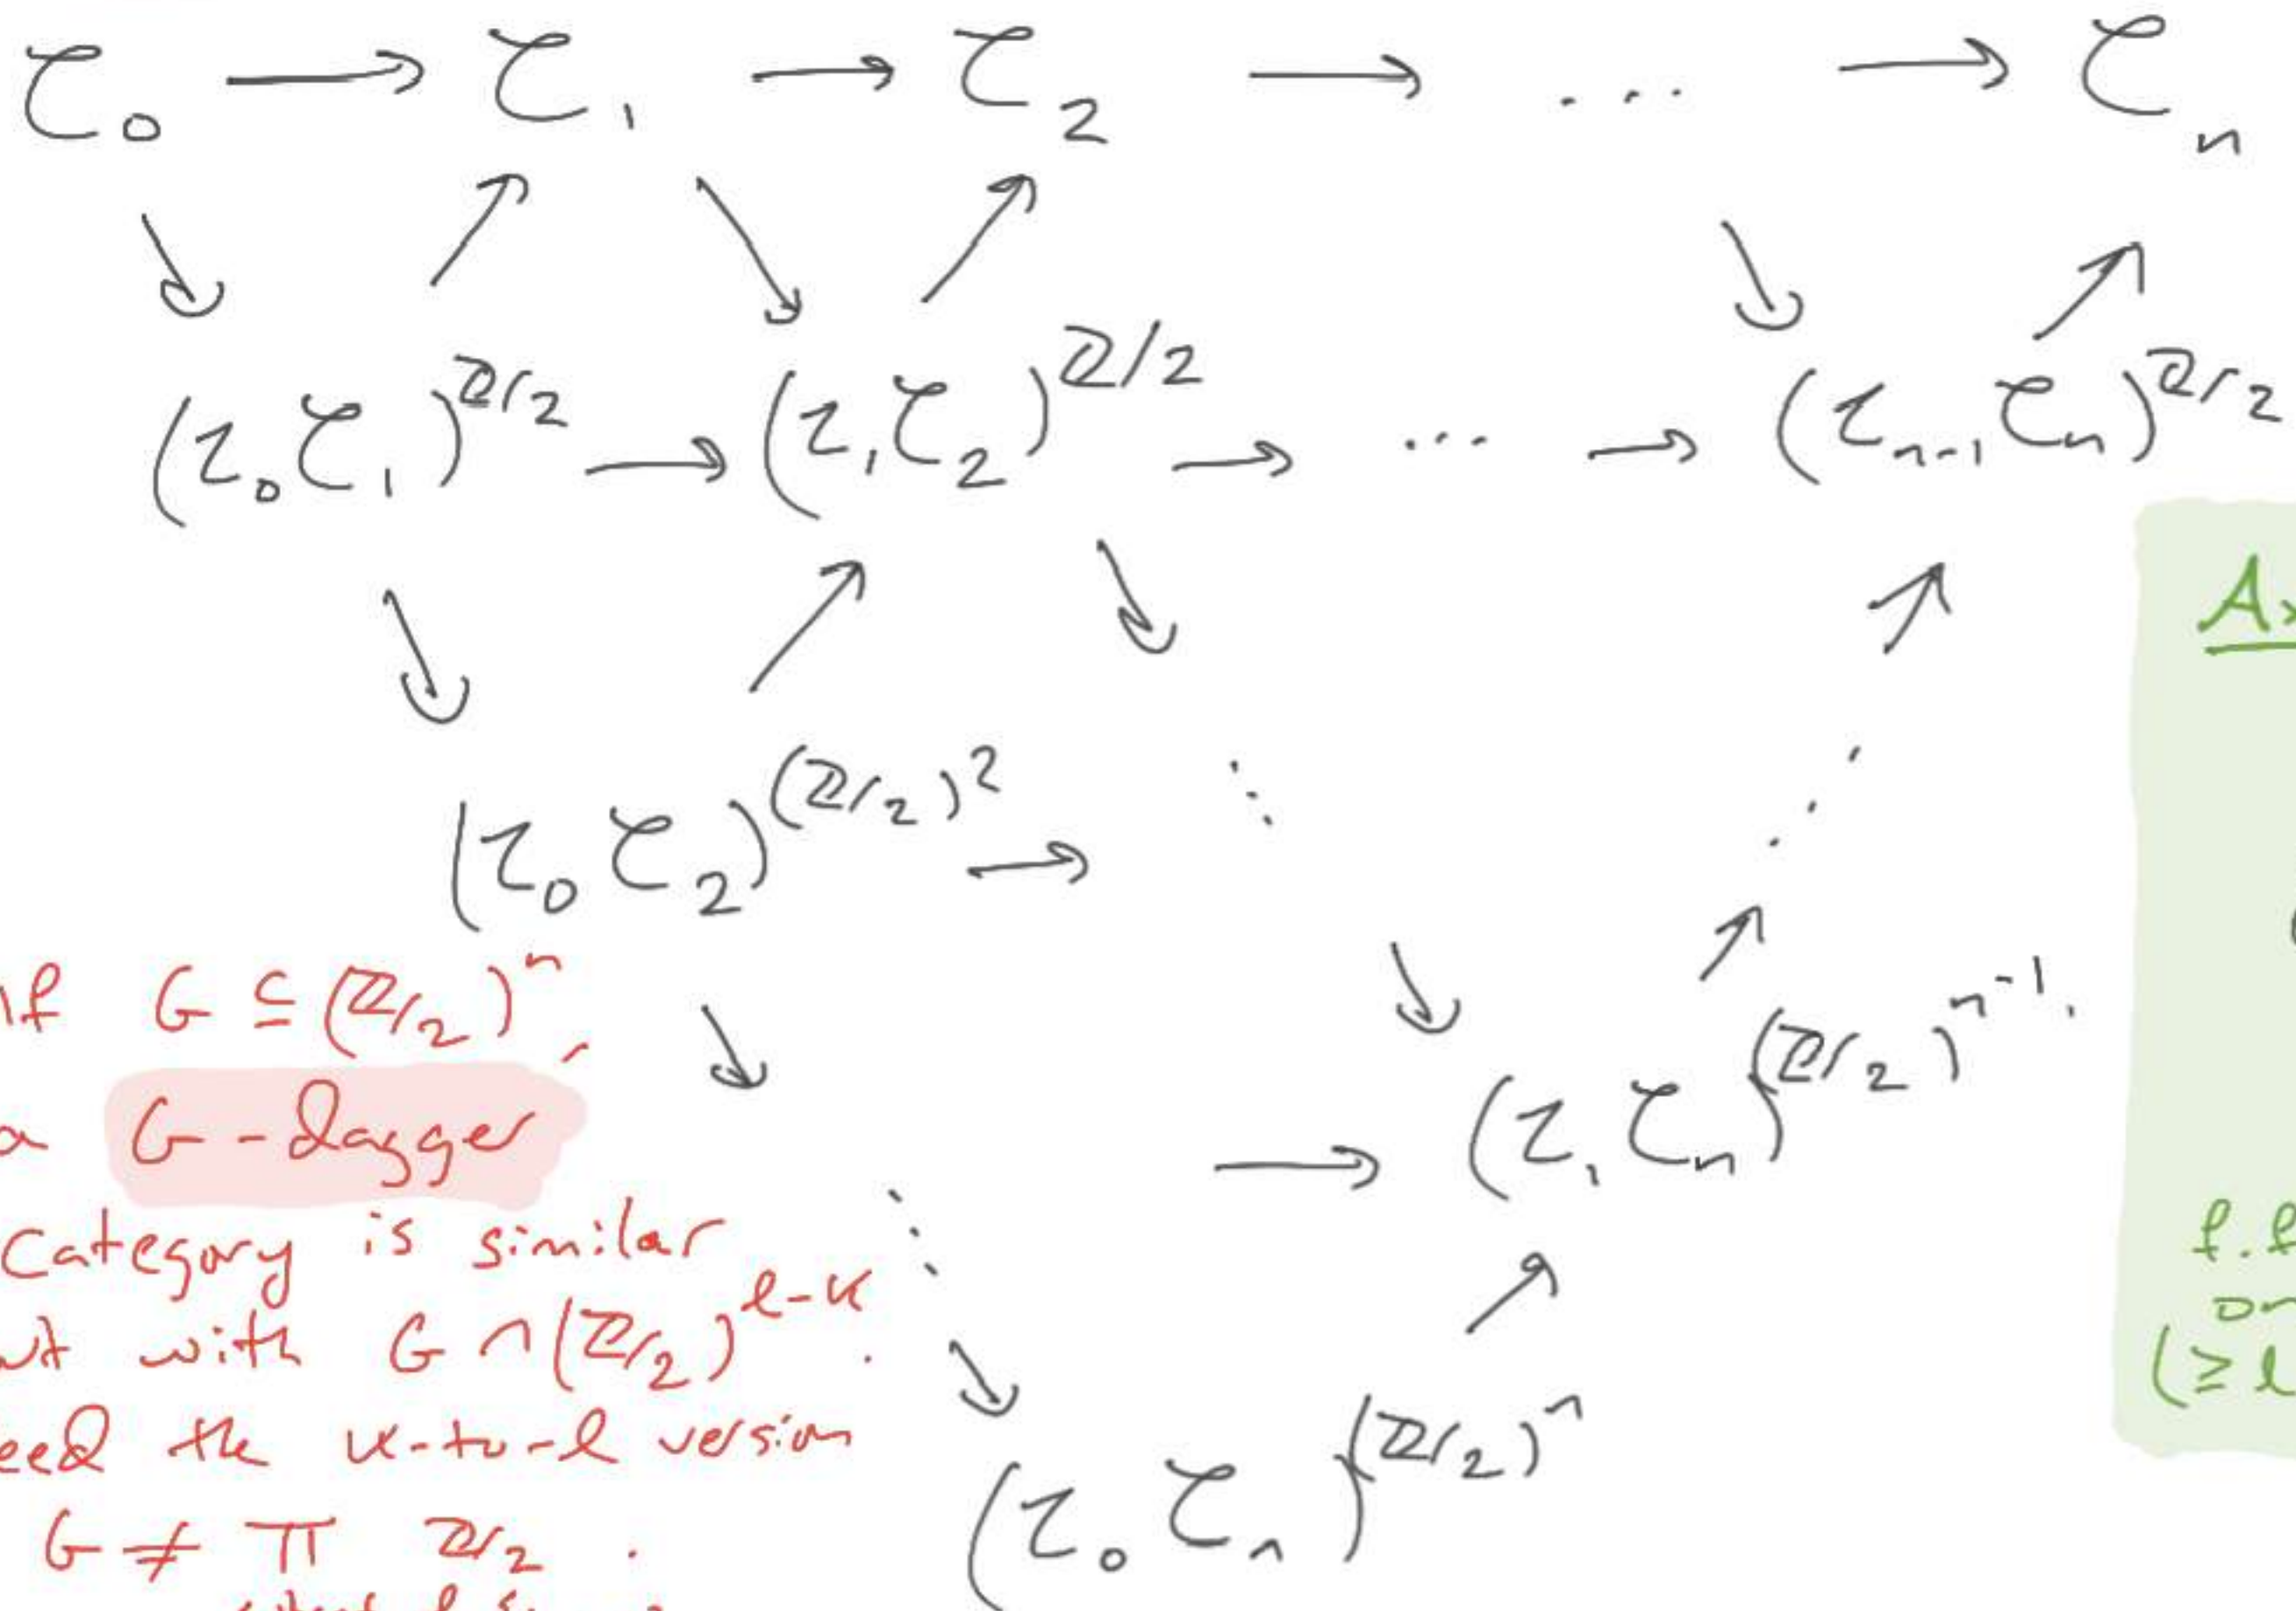 𝒞₀ → 𝒞₁ → 𝒞₂ → ... → 𝒞ₙ
(ι₀𝒞₁)^{ℤ/2} → (ι₁𝒞₂)^{ℤ/2} → ... → (ιₙ₋₁𝒞ₙ)^{ℤ/2}
(ι₀𝒞₂)^{(ℤ/2)²} →
→ (ι₁𝒞ₙ)^{(ℤ/2)^{n-1}}.
(ι₀𝒞ₙ)^{(ℤ/2)ⁿ}
if G ⊆ (ℤ/2)ⁿ,
a G-dagger
category is similar
with G ∩ (ℤ/2)^{l-k}.
the k-to-l version
G ≠ Π ℤ/2.
f.f
(≥ l